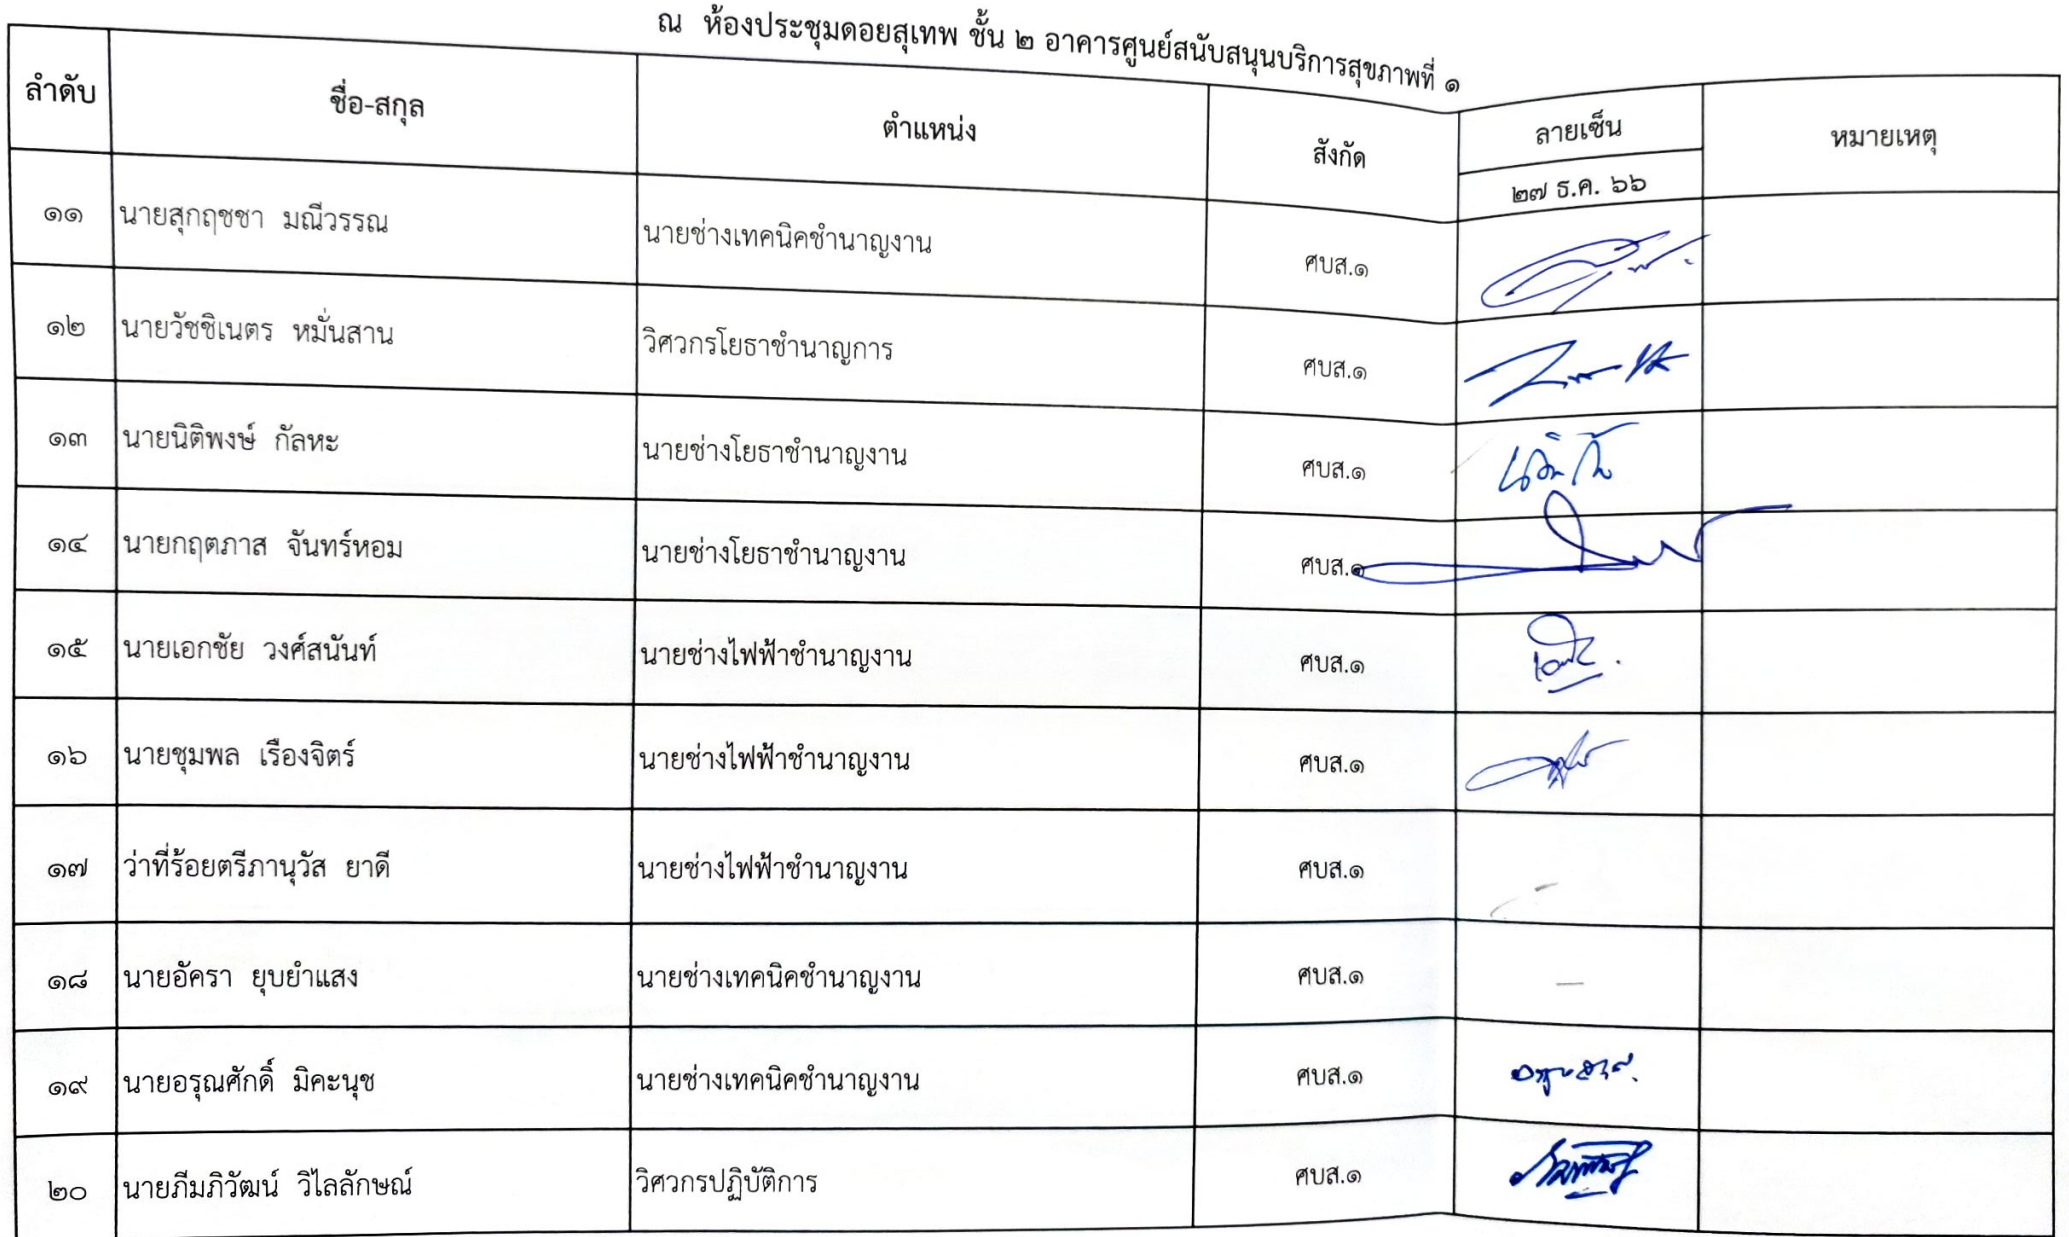 ณ ห้องประชุมดอยสุเทพ ชั้น ๒ อาคารศูนย์สนับสนุนบริการสุขภาพที่ ๑
ลำดับ ชื่อ-สกุล ตำแหน่ง สังกัด ลายเซ็น หมายเหตุ
๒๗ ธ.ค. ๖๖
๑๑ นายสุกฤชชา มณีวรรณ นายช่างเทคนิคชำนาญงาน ศบส.๑
๑๒ นายวัชชิเนตร หมั่นสาน วิศวกรโยธาชำนาญการ ศบส.๑
๑๓ นายนิติพงษ์ กัลหะ นายช่างโยธาชำนาญงาน ศบส.๑
๑๔ นายกฤตภาส จันทร์หอม นายช่างโยธาชำนาญงาน ศบส.๑
๑๕ นายเอกชัย วงศ์สนันท์ นายช่างไฟฟ้าชำนาญงาน ศบส.๑
๑๖ นายชุมพล เรืองจิตร์ นายช่างไฟฟ้าชำนาญงาน ศบส.๑
๑๗ ว่าที่ร้อยตรีภานุวัส ยาดี นายช่างไฟฟ้าชำนาญงาน ศบส.๑
๑๘ นายอัครา ยุบยำแสง นายช่างเทคนิคชำนาญงาน ศบส.๑ —
๑๙ นายอรุณศักดิ์ มิคะนุช นายช่างเทคนิคชำนาญงาน ศบส.๑
๒๐ นายภีมภิวัฒน์ วิไลลักษณ์ วิศวกรปฏิบัติการ ศบส.๑